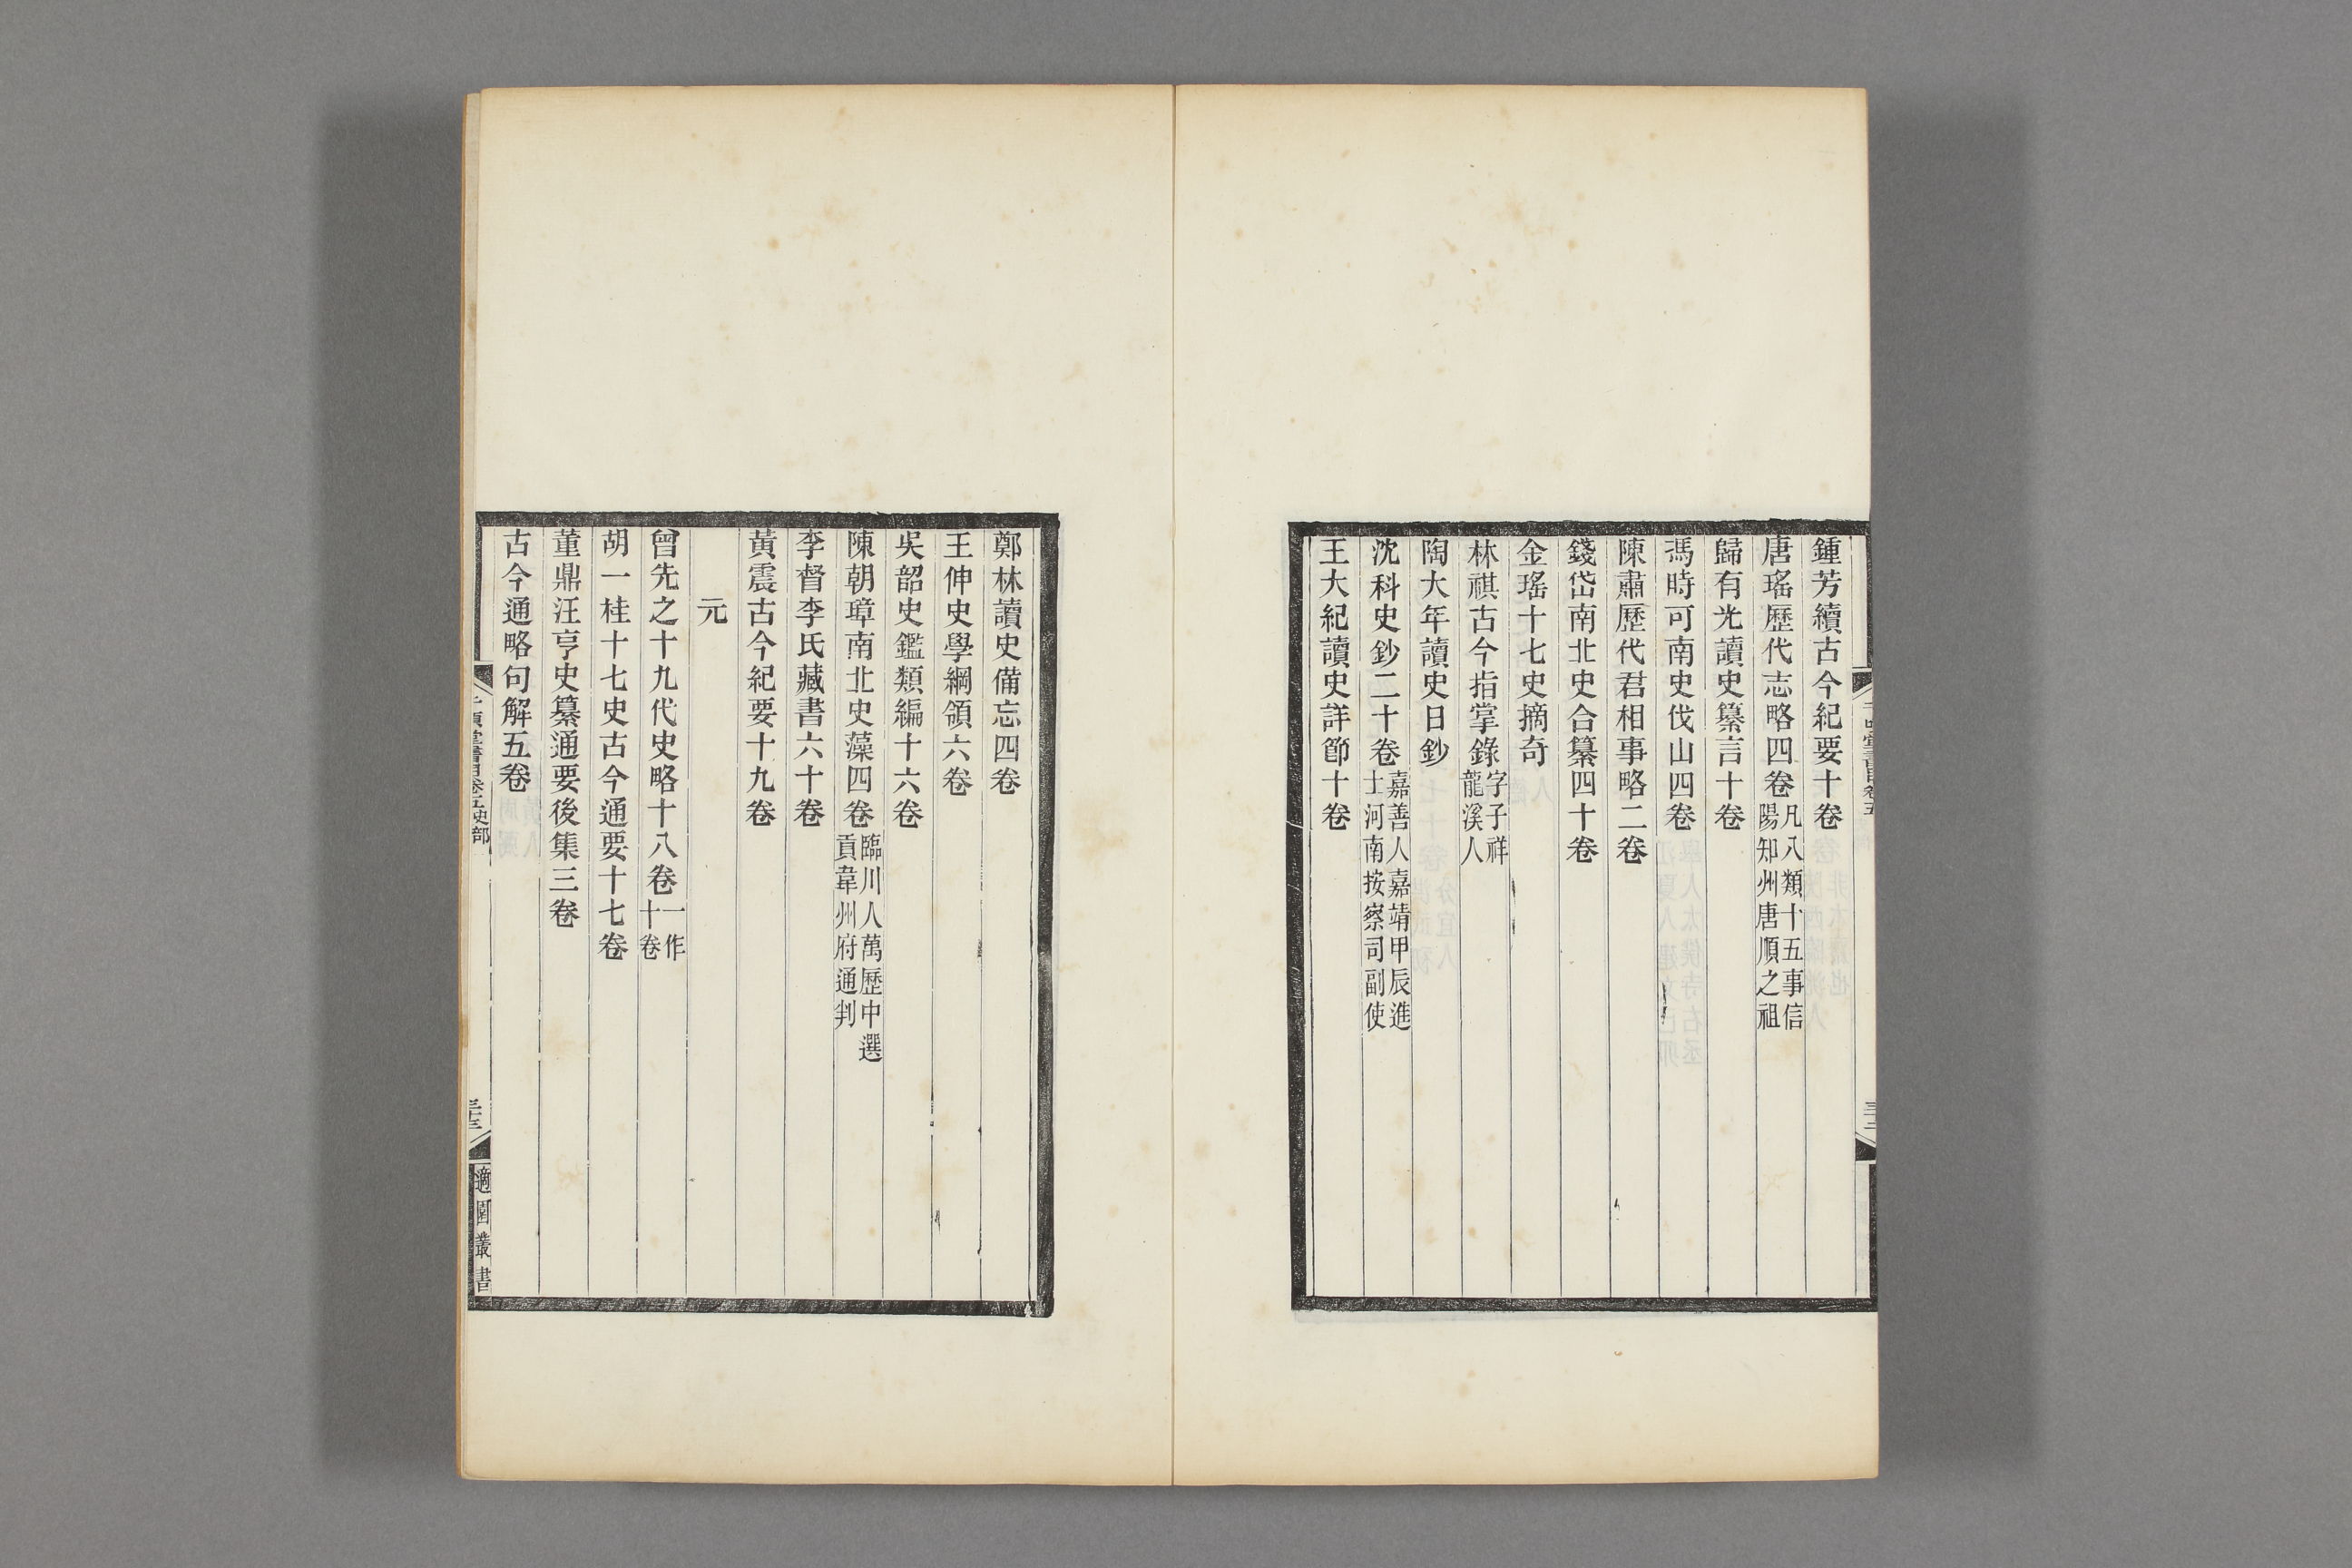 鍾芳續古今紀要十卷
唐瑤歷代志略四卷凡八類十五事信陽知州唐順之祖
歸有光讀史纂言十卷
馮時可南史伐山四卷
陳肅歷代君相事略二卷
錢岱南北史合纂四十卷
金瑤十七史摘奇
林祺古今指掌錄字子祥龍溪人
陶大年讀史日鈔
沈科史鈔二十卷嘉善人嘉靖甲辰進士河南按察司副使
王大紀讀史詳節十卷
鄭林讀史備忘四卷
王伸史學綱領六卷
吳韶史鑑類編十六卷
陳朝璋南北史藻四卷臨川人萬歷中選貢韋州府通判
李督李氏藏書六十卷
黃震古今紀要十九卷
元
曾先之十九代史略十八卷一作十卷
胡一桂十七史古今通要十七卷
董鼎汪亨史纂通要後集三卷
古今通略句解五卷
千頃堂書目卷五史部
三十三
適園叢書